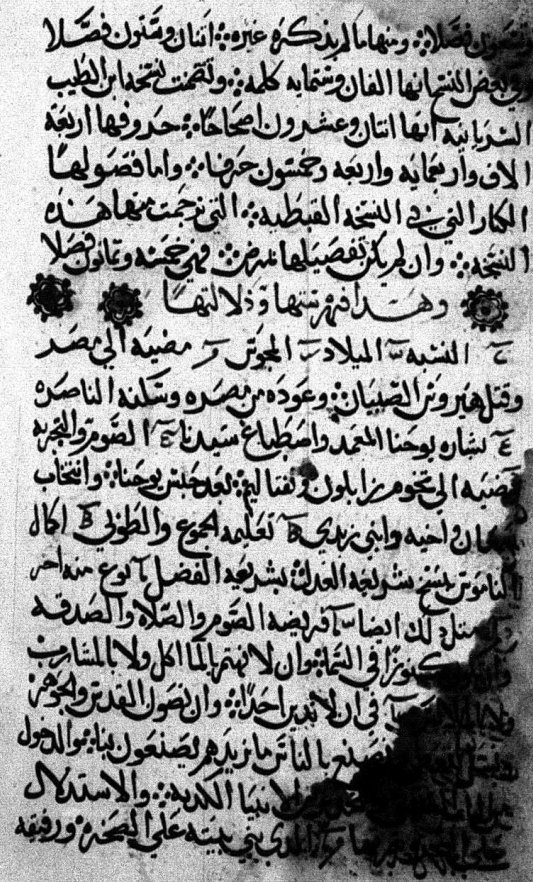 وتسعون فصلا ومنها ما لم يذكره غيره اتنان وستون فصلا
وفي بعض النسخ انها الفان وستمايه كلمه وتضمنت نسخه ابن الطيب
السريانيه انها اتنان وعشرون اصحاحا حروفها اربعة
الاف واربعمايه واربعه وخمسون حرفا واما فصولها
الكبار التي في النسخه القبطيه التي ترجمت منها هذه
النسخه وان لم يكن تفصيلها فهي خمسه وتمانون فصلا
وهذا فهرستها ودلالتها
النسبه الميلاد المجوس مضيه الي مصر
وقتل هيرودس الصبيان وعوده من مصر وسكنه الناصره
بشاره يوحنا المعمد واصطباغ سيدنا الصوم والتجربه
مضيه الي تخوم زابلون ونفتاليم بعد حبس يوحنا وانتخاب
سمعان واخيه وابني زبدي تعليمه الجموع والطوبي اكمال
الناموس بنسخ شريعة العدل بشريعه الفضل نوع منه اخر
مثل دلك ايضا فريضه الصوم والصلاه والصدقه
في السما وان لا نهتم بالماكل ولا بالمشارب
في ان لا ندين احدا وان نصون القدس والجوهر
نصنع بالناس ما نريدهم يصنعون بنا والدخول
الانبيا الكدبه والاستدلال
علي الدي بني بيته علي الصخره ورفيقه